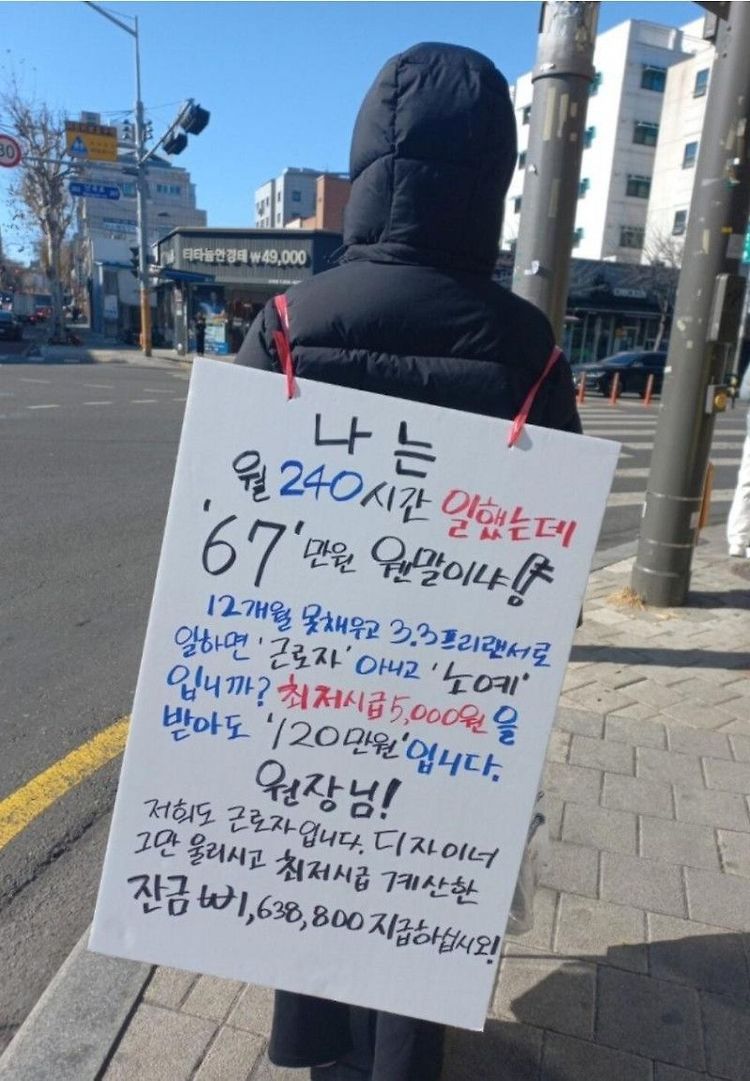 30
티타늄안경테 ₩49,000
나는
월 240시간 일했는데
'67'만원 웬말이냐!
12개월 못채우고 3.3프리랜서로
일하면 '근로자' 아니고 '노예'
입니까? 최저시급 5,000원을
받아도 '120만원'입니다.
원장님!
저희도 근로자입니다. 디자이너
그만 울리시고 최저시급 계산한
잔금 ₩1,638,800 지급하십시오!